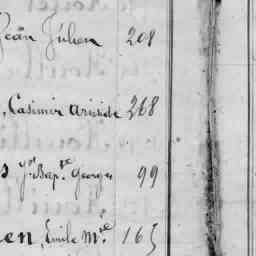 Jean Julien 208
, Casimir Aristide 368
s Jn Bapte Georges 99
en, Emile Me 165